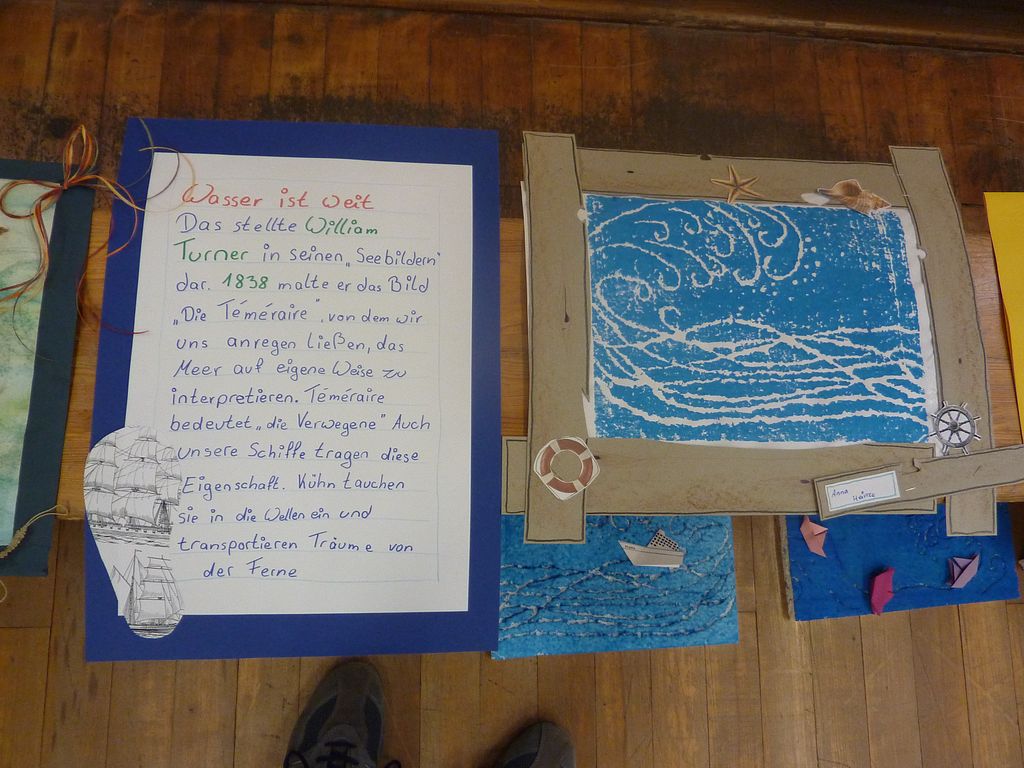 Wasser ist weit
Das stellte William
Turner in seinen „Seebildern"
dar. 1838 malte er das Bild
„Die Téméraire", von dem wir
uns anregen ließen, das
Meer auf eigene Weise zu
interpretieren. Téméraire
bedeutet „die Verwegene" Auch
unsere Schiffe tragen diese
Eigenschaft. Kühn tauchen
sie in die Wellen ein und
transportieren Träume von
der Ferne
Anna